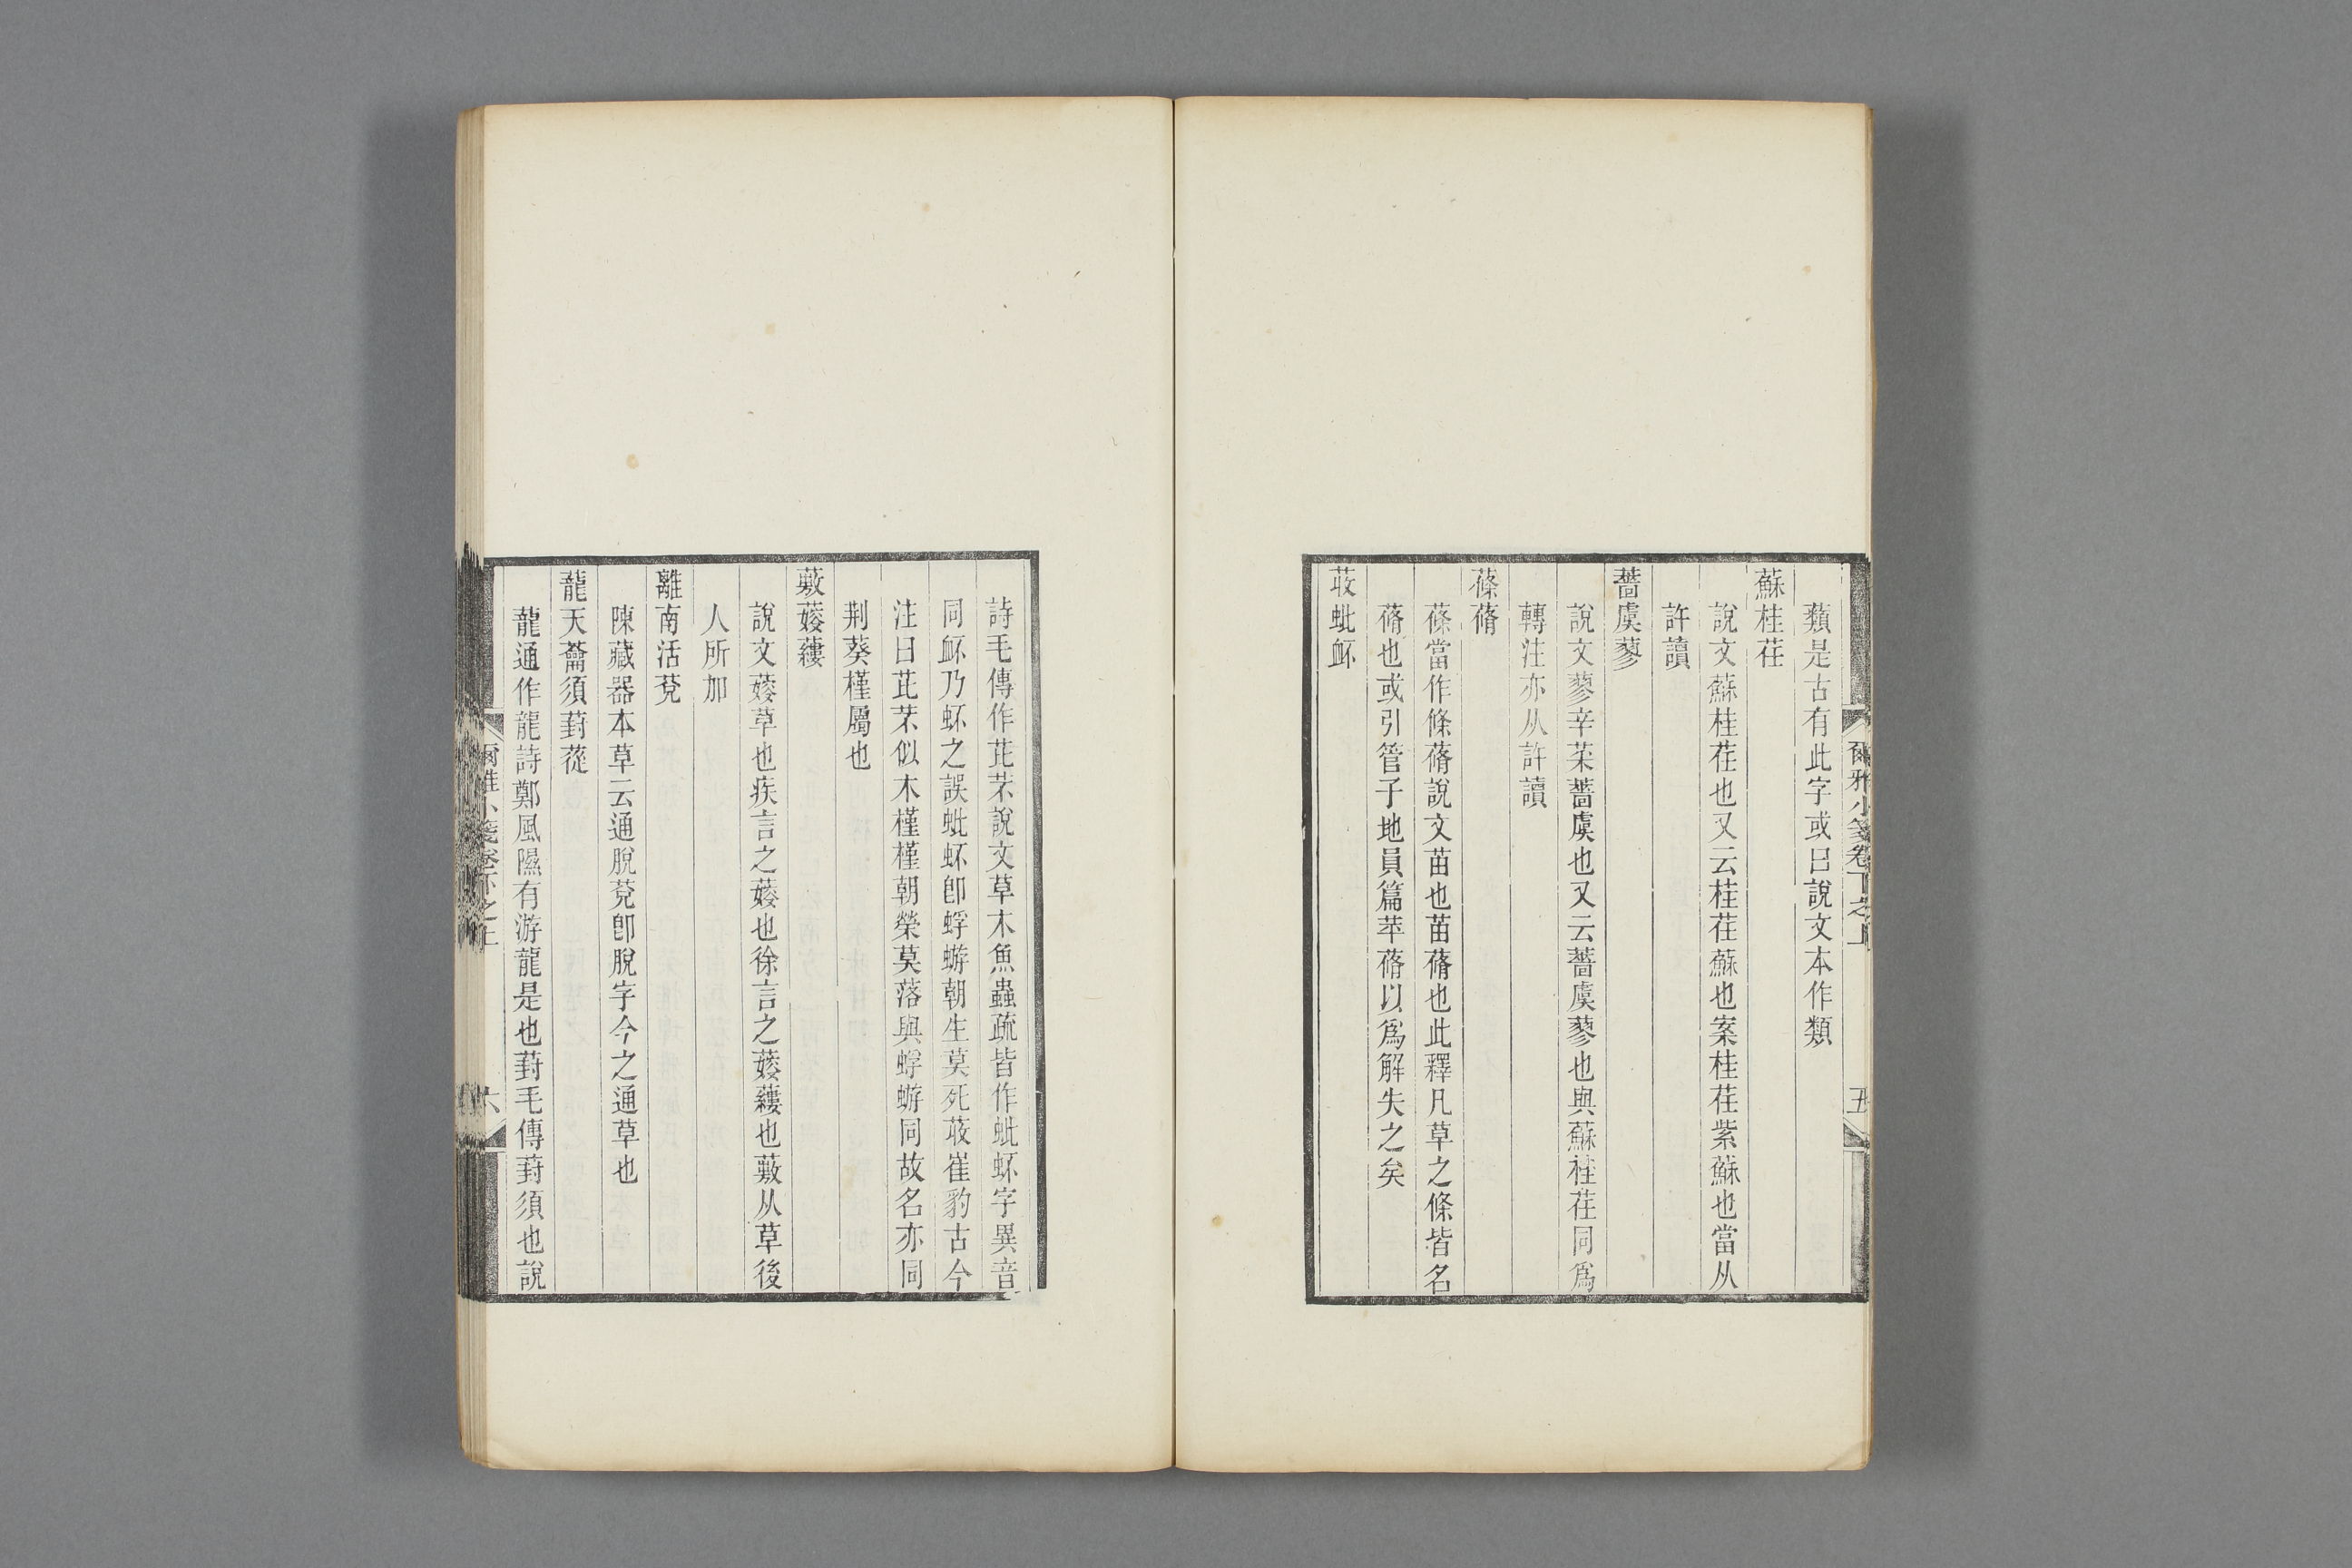 爾雅小箋卷下之上
五
類是古有此字或曰說文本作類
蘇桂荏
說文蘇桂荏也又云桂荏蘇也案桂荏紫蘇也當从
許讀
薔虞蓼
說文蓼辛菜薔虞也又云薔虞蓼也與蘇桂荏同爲
轉注亦从許讀
蓧蓨
蓧當作條蓨說文苗也苖蓨也此釋凡草之條皆名
蓨也或引管子地員篇苹蓨以爲解失之矣
荍蚍衃
詩毛傳作芘芣說文草木魚蟲疏皆作蚍衃字異音
同衃乃虾之誤蚍虾卽蜉蝣朝生莫死荍崔豹古今
注曰芘芣似木槿槿朝榮莫落與蜉蝣同故名亦同
荆葵槿屬也
蔜薞蔞
說文薞草也疾言之薞也徐言之薞蔞也蔜从草後
人所加
離南活莌
陳藏器本草云通脫莌卽脫字今之通草也
蘢天蘥須葑蓯
蘢通作龍詩鄭風隰有游龍是也葑毛傳葑須也說
爾雅小箋卷下之上
六